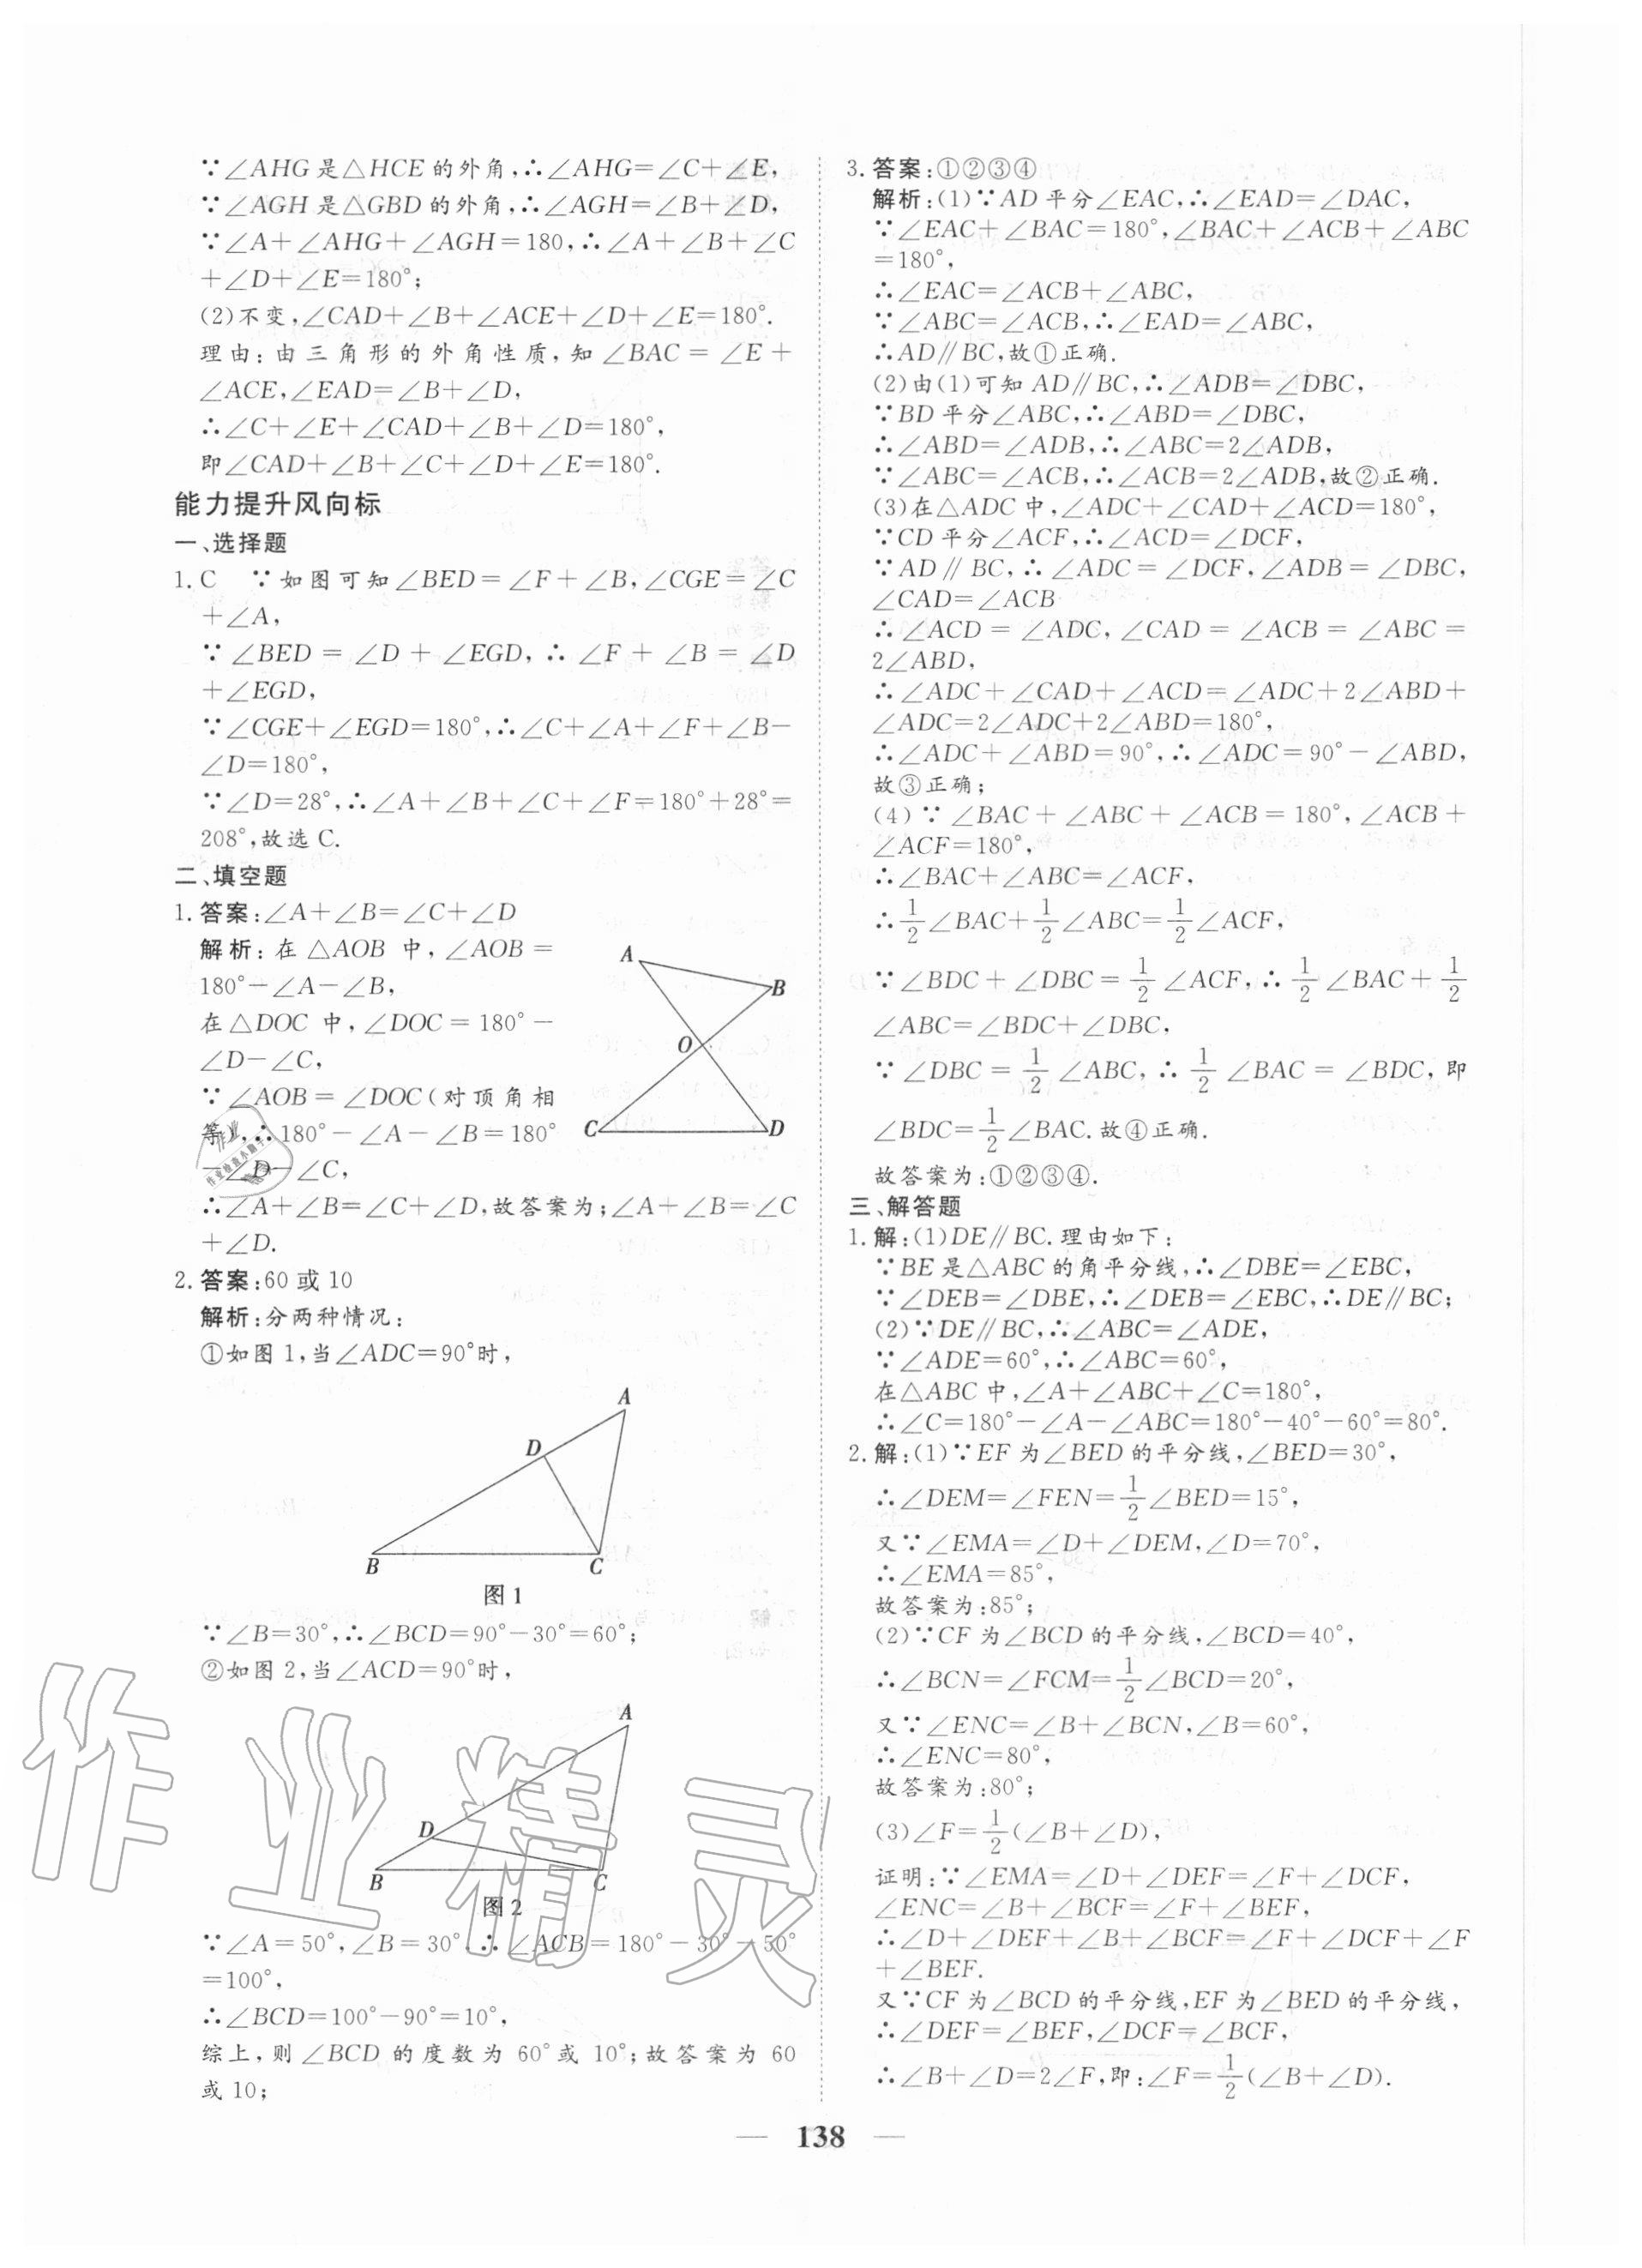 ∵∠AHG是△HCE的外角,∴∠AHG=∠C+∠E,
∵∠AGH是△GBD的外角,∴∠AGH=∠B+∠D,
∵∠A+∠AHG+∠AGH=180,∴∠A+∠B+∠C
+∠D+∠E=180°;
(2)不变,∠CAD+∠B+∠ACE+∠D+∠E=180°.
理由:由三角形的外角性质,知∠BAC=∠E+
∠ACE,∠EAD=∠B+∠D,
∴∠C+∠E+∠CAD+∠B+∠D=180°,
即∠CAD+∠B+∠C+∠D+∠E=180°.
能力提升风向标
一、选择题
1.C ∵如图可知∠BED=∠F+∠B,∠CGE=∠C
+∠A,
∵∠BED=∠D+∠EGD,∴∠F+∠B=∠D
+∠EGD,
∵∠CGE+∠EGD=180°,∴∠C+∠A+∠F+∠B-
∠D=180°,
∵∠D=28°,∴∠A+∠B+∠C+∠F=180°+28°=
208°,故选C.
二、填空题
1.答案:∠A+∠B=∠C+∠D
解析:在△AOB中,∠AOB=
180°-∠A-∠B,
在△DOC中,∠DOC=180°-
∠D-∠C,
∵∠AOB=∠DOC(对顶角相
等),∴180°-∠A-∠B=180°
-∠D-∠C,
A
B
O
C
D
∴∠A+∠B=∠C+∠D,故答案为;∠A+∠B=∠C
+∠D.
2.答案:60或10
解析:分两种情况:
①如图1,当∠ADC=90°时,
A
D
B
C
图1
∵∠B=30°,∴∠BCD=90°-30°=60°;
②如图2,当∠ACD=90°时,
A
D
B
C
图2
∵∠A=50°,∠B=30°,∴∠ACB=180°-30°-50°
=100°,
∴∠BCD=100°-90°=10°,
综上,则∠BCD的度数为60°或10°;故答案为60
或10;
3.答案:①②③④
解析:(1)∵AD平分∠EAC,∴∠EAD=∠DAC,
∵∠EAC+∠BAC=180°,∠BAC+∠ACB+∠ABC
=180°,
∴∠EAC=∠ACB+∠ABC,
∵∠ABC=∠ACB,∴∠EAD=∠ABC,
∴AD∥BC,故①正确.
(2)由(1)可知AD∥BC,∴∠ADB=∠DBC,
∵BD平分∠ABC,∴∠ABD=∠DBC,
∴∠ABD=∠ADB,∴∠ABC=2∠ADB,
∵∠ABC=∠ACB,∴∠ACB=2∠ADB,故②正确.
(3)在△ADC中,∠ADC+∠CAD+∠ACD=180°,
∵CD平分∠ACF,∴∠ACD=∠DCF,
∵AD∥BC,∴∠ADC=∠DCF,∠ADB=∠DBC,
∠CAD=∠ACB
∴∠ACD=∠ADC,∠CAD=∠ACB=∠ABC=
2∠ABD,
∴∠ADC+∠CAD+∠ACD=∠ADC+2∠ABD+
∠ADC=2∠ADC+2∠ABD=180°,
∴∠ADC+∠ABD=90°,∴∠ADC=90°-∠ABD,
故③正确;
(4)∵∠BAC+∠ABC+∠ACB=180°,∠ACB+
∠ACF=180°,
∴∠BAC+∠ABC=∠ACF,
∴1/2∠BAC+1/2∠ABC=1/2∠ACF,
∵∠BDC+∠DBC=1/2∠ACF,∴1/2∠BAC+1/2
∠ABC=∠BDC+∠DBC,
∵∠DBC=1/2∠ABC,∴1/2∠BAC=∠BDC,即
∠BDC=1/2∠BAC.故④正确.
故答案为:①②③④.
三、解答题
1.解:(1)DE∥BC.理由如下:
∵BE是△ABC的角平分线,∴∠DBE=∠EBC,
∵∠DEB=∠DBE,∴∠DEB=∠EBC,∴DE∥BC;
(2)∵DE∥BC,∴∠ABC=∠ADE,
∵∠ADE=60°,∴∠ABC=60°,
在△ABC中,∠A+∠ABC+∠C=180°,
∴∠C=180°-∠A-∠ABC=180°-40°-60°=80°.
2.解:(1)∵EF为∠BED的平分线,∠BED=30°,
∴∠DEM=∠FEN=1/2∠BED=15°,
又∵∠EMA=∠D+∠DEM,∠D=70°,
∴∠EMA=85°,
故答案为:85°;
(2)∵CF为∠BCD的平分线,∠BCD=40°,
∴∠BCN=∠FCM=1/2∠BCD=20°,
又∵∠ENC=∠B+∠BCN,∠B=60°,
∴∠ENC=80°,
故答案为:80°;
(3)∠F=1/2(∠B+∠D),
证明:∵∠EMA=∠D+∠DEF=∠F+∠DCF,
∠ENC=∠B+∠BCF=∠F+∠BEF,
∴∠D+∠DEF+∠B+∠BCF=∠F+∠DCF+∠F
+∠BEF.
又∵CF为∠BCD的平分线,EF为∠BED的平分线,
∴∠DEF=∠BEF,∠DCF=∠BCF,
∴∠B+∠D=2∠F,即:∠F=1/2(∠B+∠D).
— 138 —
作业精灵